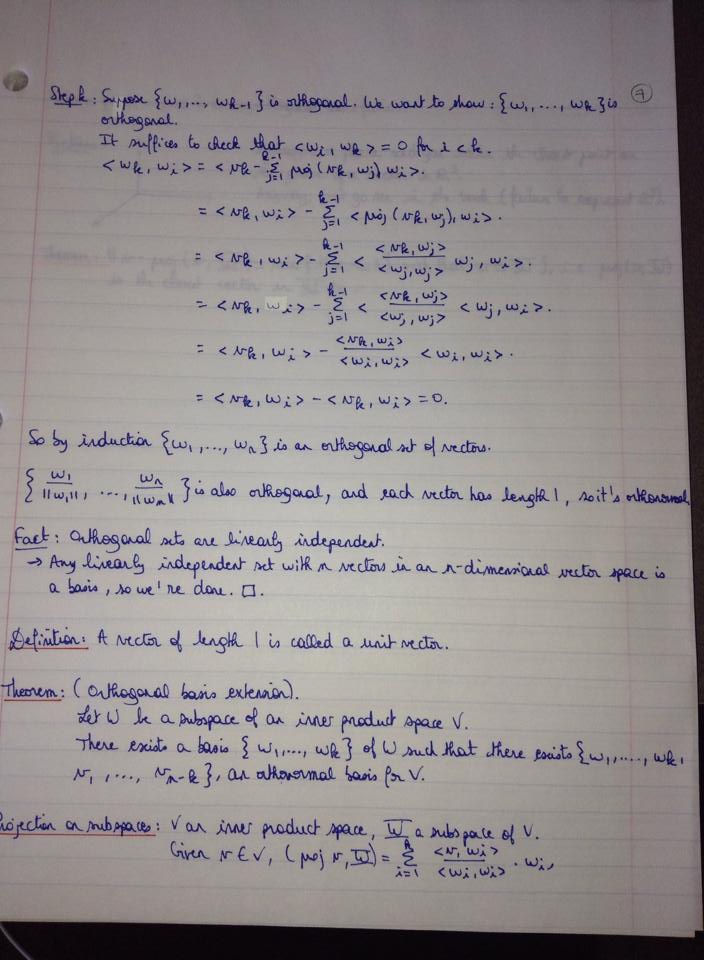 7
Step k: Suppose {w1,..., wk-1} is orthogonal. We want to show: {w1,..., wk} is
orthogonal.
It suffices to check that <wi, wk> = 0 for i < k.
<wk, wi> = < vk - Σ_{j=1}^{k-1} proj (vk, wj) wi>.
= <vk, wi> - Σ_{j=1}^{k-1} < proj (vk, wj), wi>.
= <vk, wi> - Σ_{j=1}^{k-1} < <vk, wj>/<wj, wj> wj, wi>.
= <vk, wi> - Σ_{j=1}^{k-1} < <vk, wj>/<wj, wj> <wj, wi>.
= <vk, wi> - <vk, wi>/<wi, wi> <wi, wi>.
= <vk, wi> - <vk, wi> = 0.
So by induction {w1,..., wn} is an orthogonal set of vectors.
{ w1/||w1||, ..., wn/||wn|| } is also orthogonal, and each vector has length 1, so it's orthonormal.
Fact: Orthogonal sets are linearly independent.
→ Any linearly independent set with n vectors in an n-dimensional vector space is
a basis, so we're done. □.
Definition: A vector of length 1 is called a unit vector.
Theorem: (Orthogonal basis extension).
Let W be a subspace of an inner product space V.
There exists a basis {w1,..., wk} of W such that there exists {w1,....., wk,
v1, ...., vn-k}, an orthonormal basis for V.
Projection on subspaces: V an inner product space, W a subspace of V.
Given v ∈ V, (proj v, W) = Σ_{i=1}^{k} <v, wi>/<wi, wi> · wi,